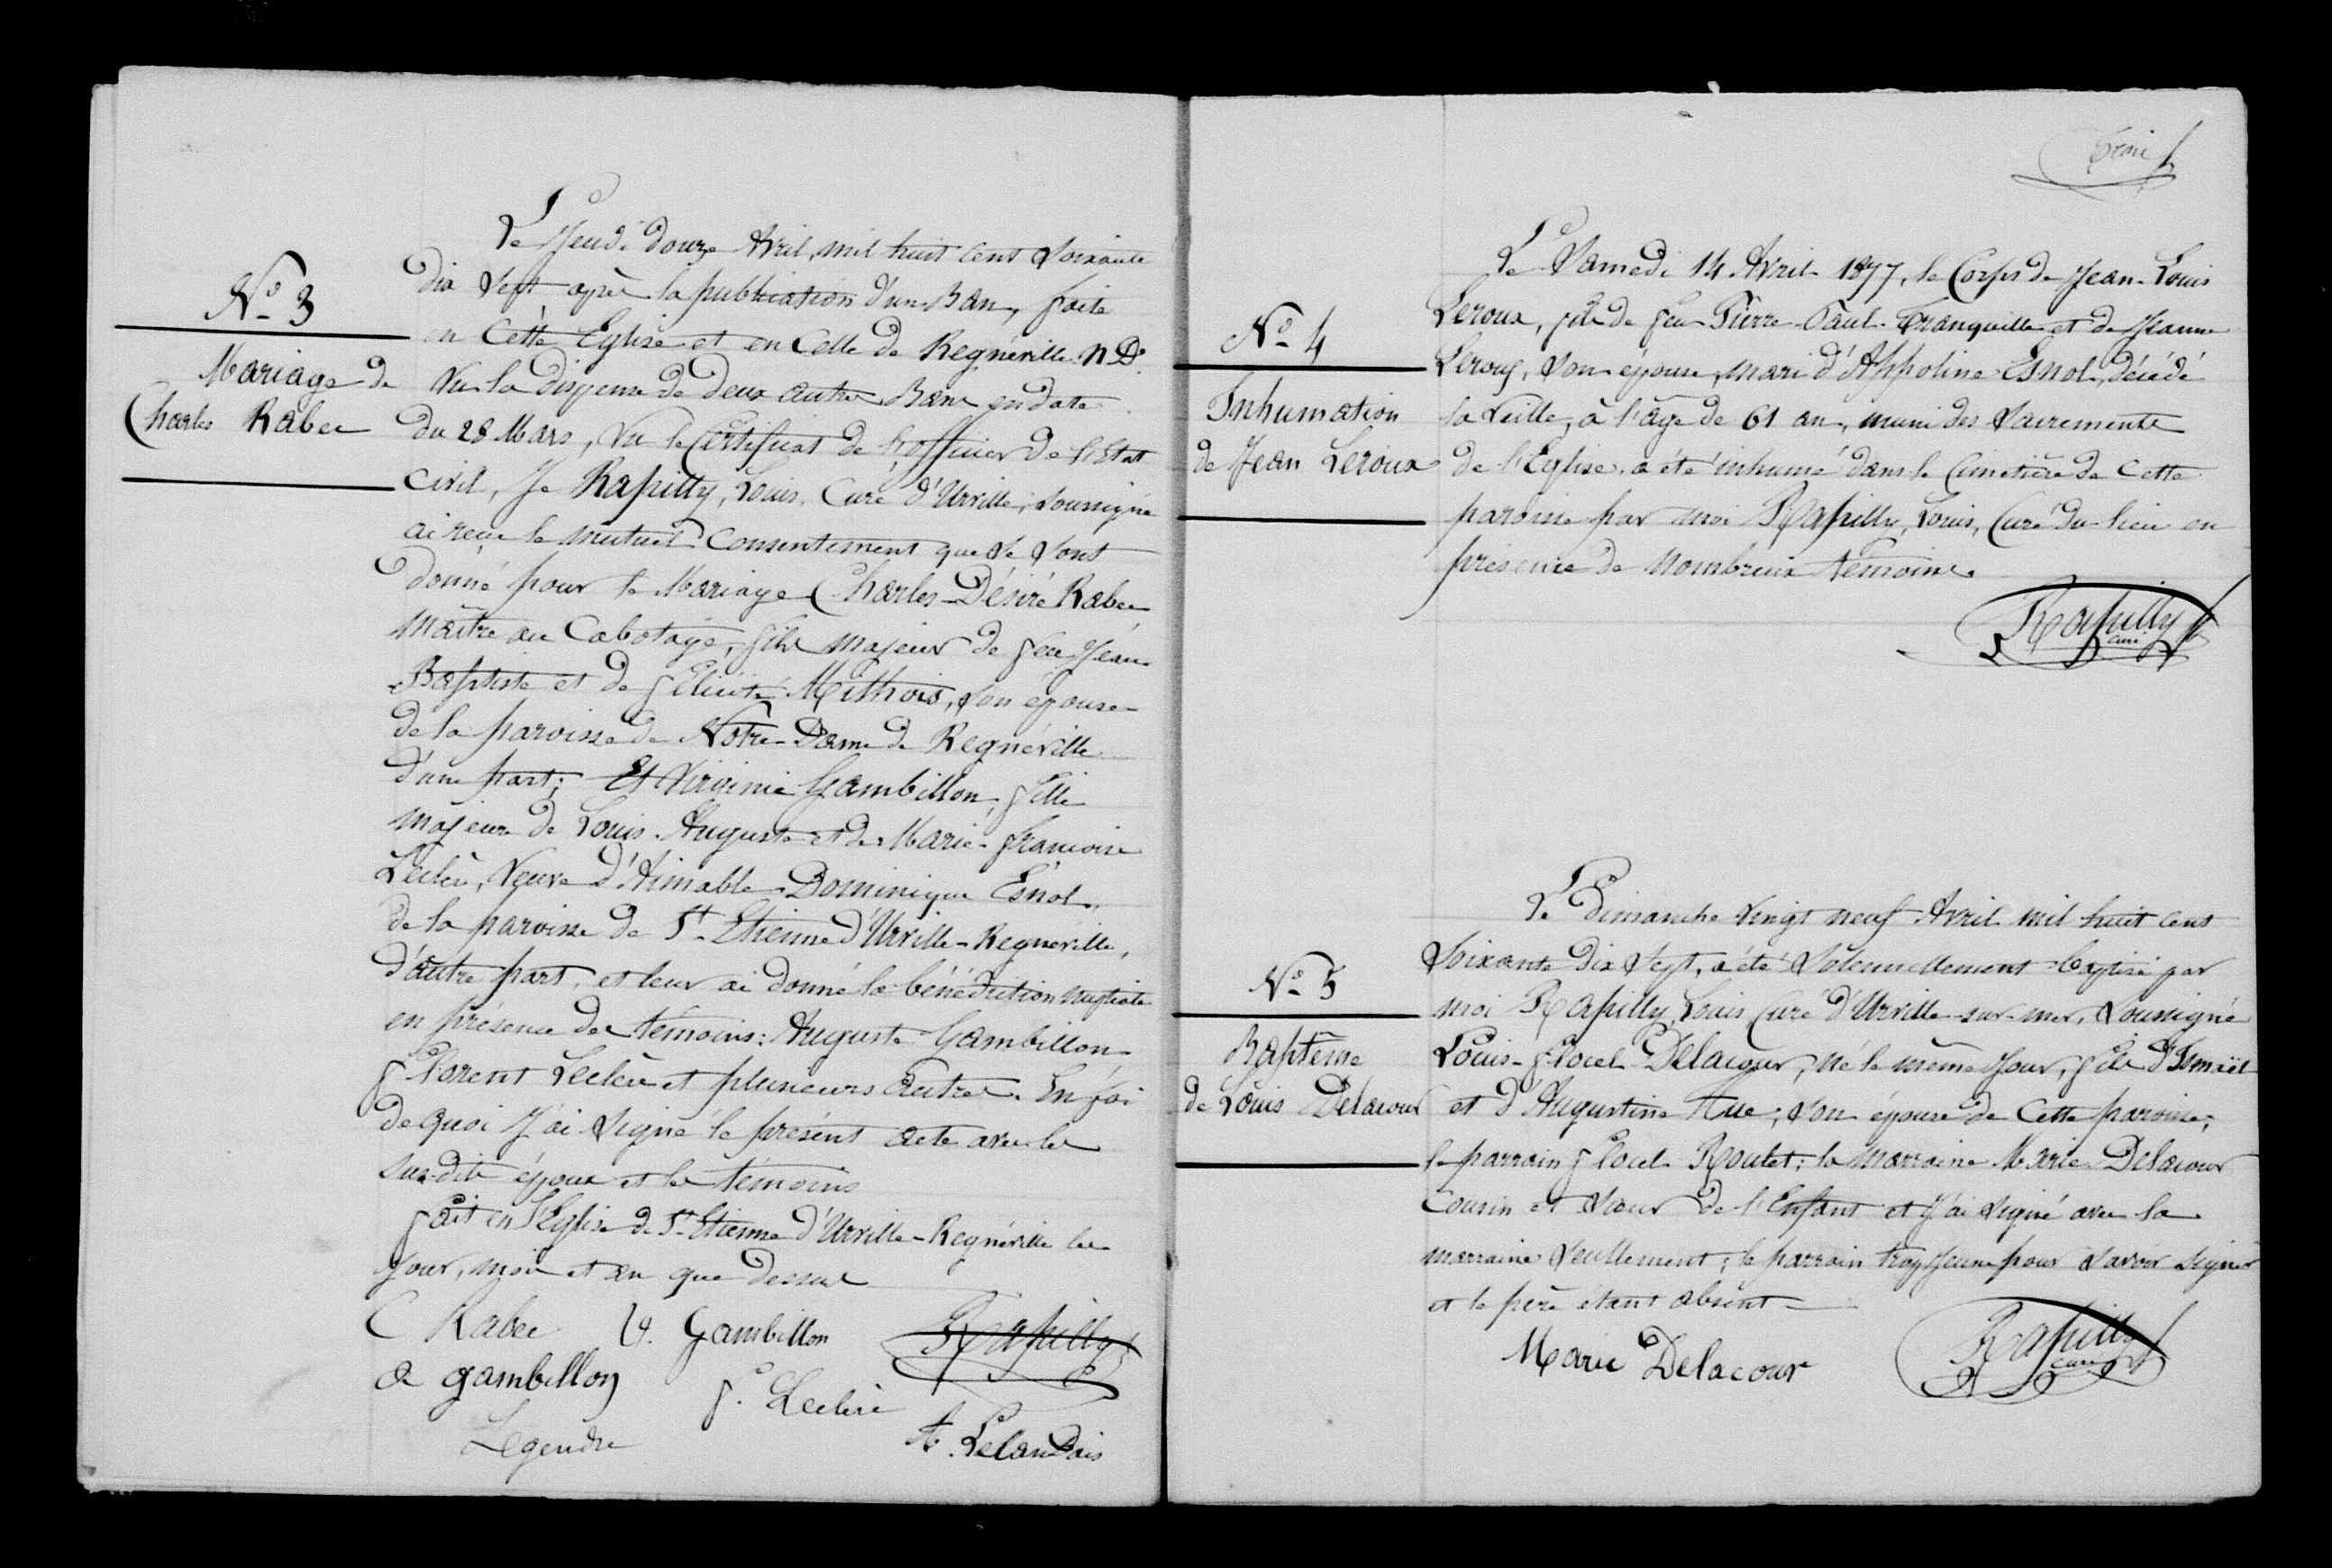 N° 3
Mariage de
Charles Rabec
Le Jeudi douze Avril, mil huit cent soixante
dix sept après la publication d'un Ban, faite
en Cette Eglise et en Celle de Regnéville N. D.
Vu la dispense de deux autres Bans en date
du 28 Mars, Vu le Certificat de l'officier de l'Etat
civil, Je Rapilly, Louis, Curé d'Urville, soussigné
ai reçu le mutuel Consentement que se sont
donné pour le Mariage Charles-Désiré Rabec
maître au Cabotage, fils majeur de feu Jean
Baptiste et de Félicité Mithois, son épouse
de la paroisse de Notre-Dame de Regnéville
d'une part; Et Virginie Gambillon, fille
majeure de Louis-Auguste et de Marie-françoise
Leclère, Veuve d'Aimable Dominique Esnol,
de la paroisse de St-Etienne d'Urville-Regnéville,
d'autre part, et leur ai donné la bénédiction nuptiale
en présence des témoins: Auguste Gambillon,
florent Leclère et plusieurs Autres. En foi
de quoi J'ai signé le présent acte avec les
sus-dits époux et les témoins
fait en l'Eglise de St-Etienne d'Urville-Regnéville les
jour, mois et an que dessus
C Rabec V. Gambillon Rapilly
a gambillon f. Leclère
Legendre A. Lelandais
N° 4
Inhumation
de Jean Leroux
Le Samedi 14 Avril 1877, le Corps de Jean-Louis
Leroux, fils de feu Pierre-Paul-Tranquille et de Jeanne
Leroux, son épouse, mari d'Appoline Esnol, décédé
la veille, à l'âge de 61 ans, muni des Sacrements
de l'Eglise, a été inhumé dans le Cimetière de Cette
paroisse par moi Rapilly, Louis, Curé du lieu en
présence de Nombreux témoins.
Rapilly
curé
N° 5
Baptême
de Louis Delacour
Le Dimanche Vingt neuf Avril mil huit cent
Soixante Dix Sept, a été Solennellement baptisé par
moi Rapilly, Louis, Curé d'Urville-sur-mer, soussigné
Louis-flocel Delacour, né le même jour, fils d'Ismaël
et d'Augustine Hue, son épouse de Cette paroisse;
le parrain flocel Roulet; la marraine Marie Delacour
Cousin et sœur de l'Enfant et J'ai signé avec la
marraine seullement; le parrain trop jeune pour savoir signer
et le père étant absent
Marie Delacour Rapilly
curé